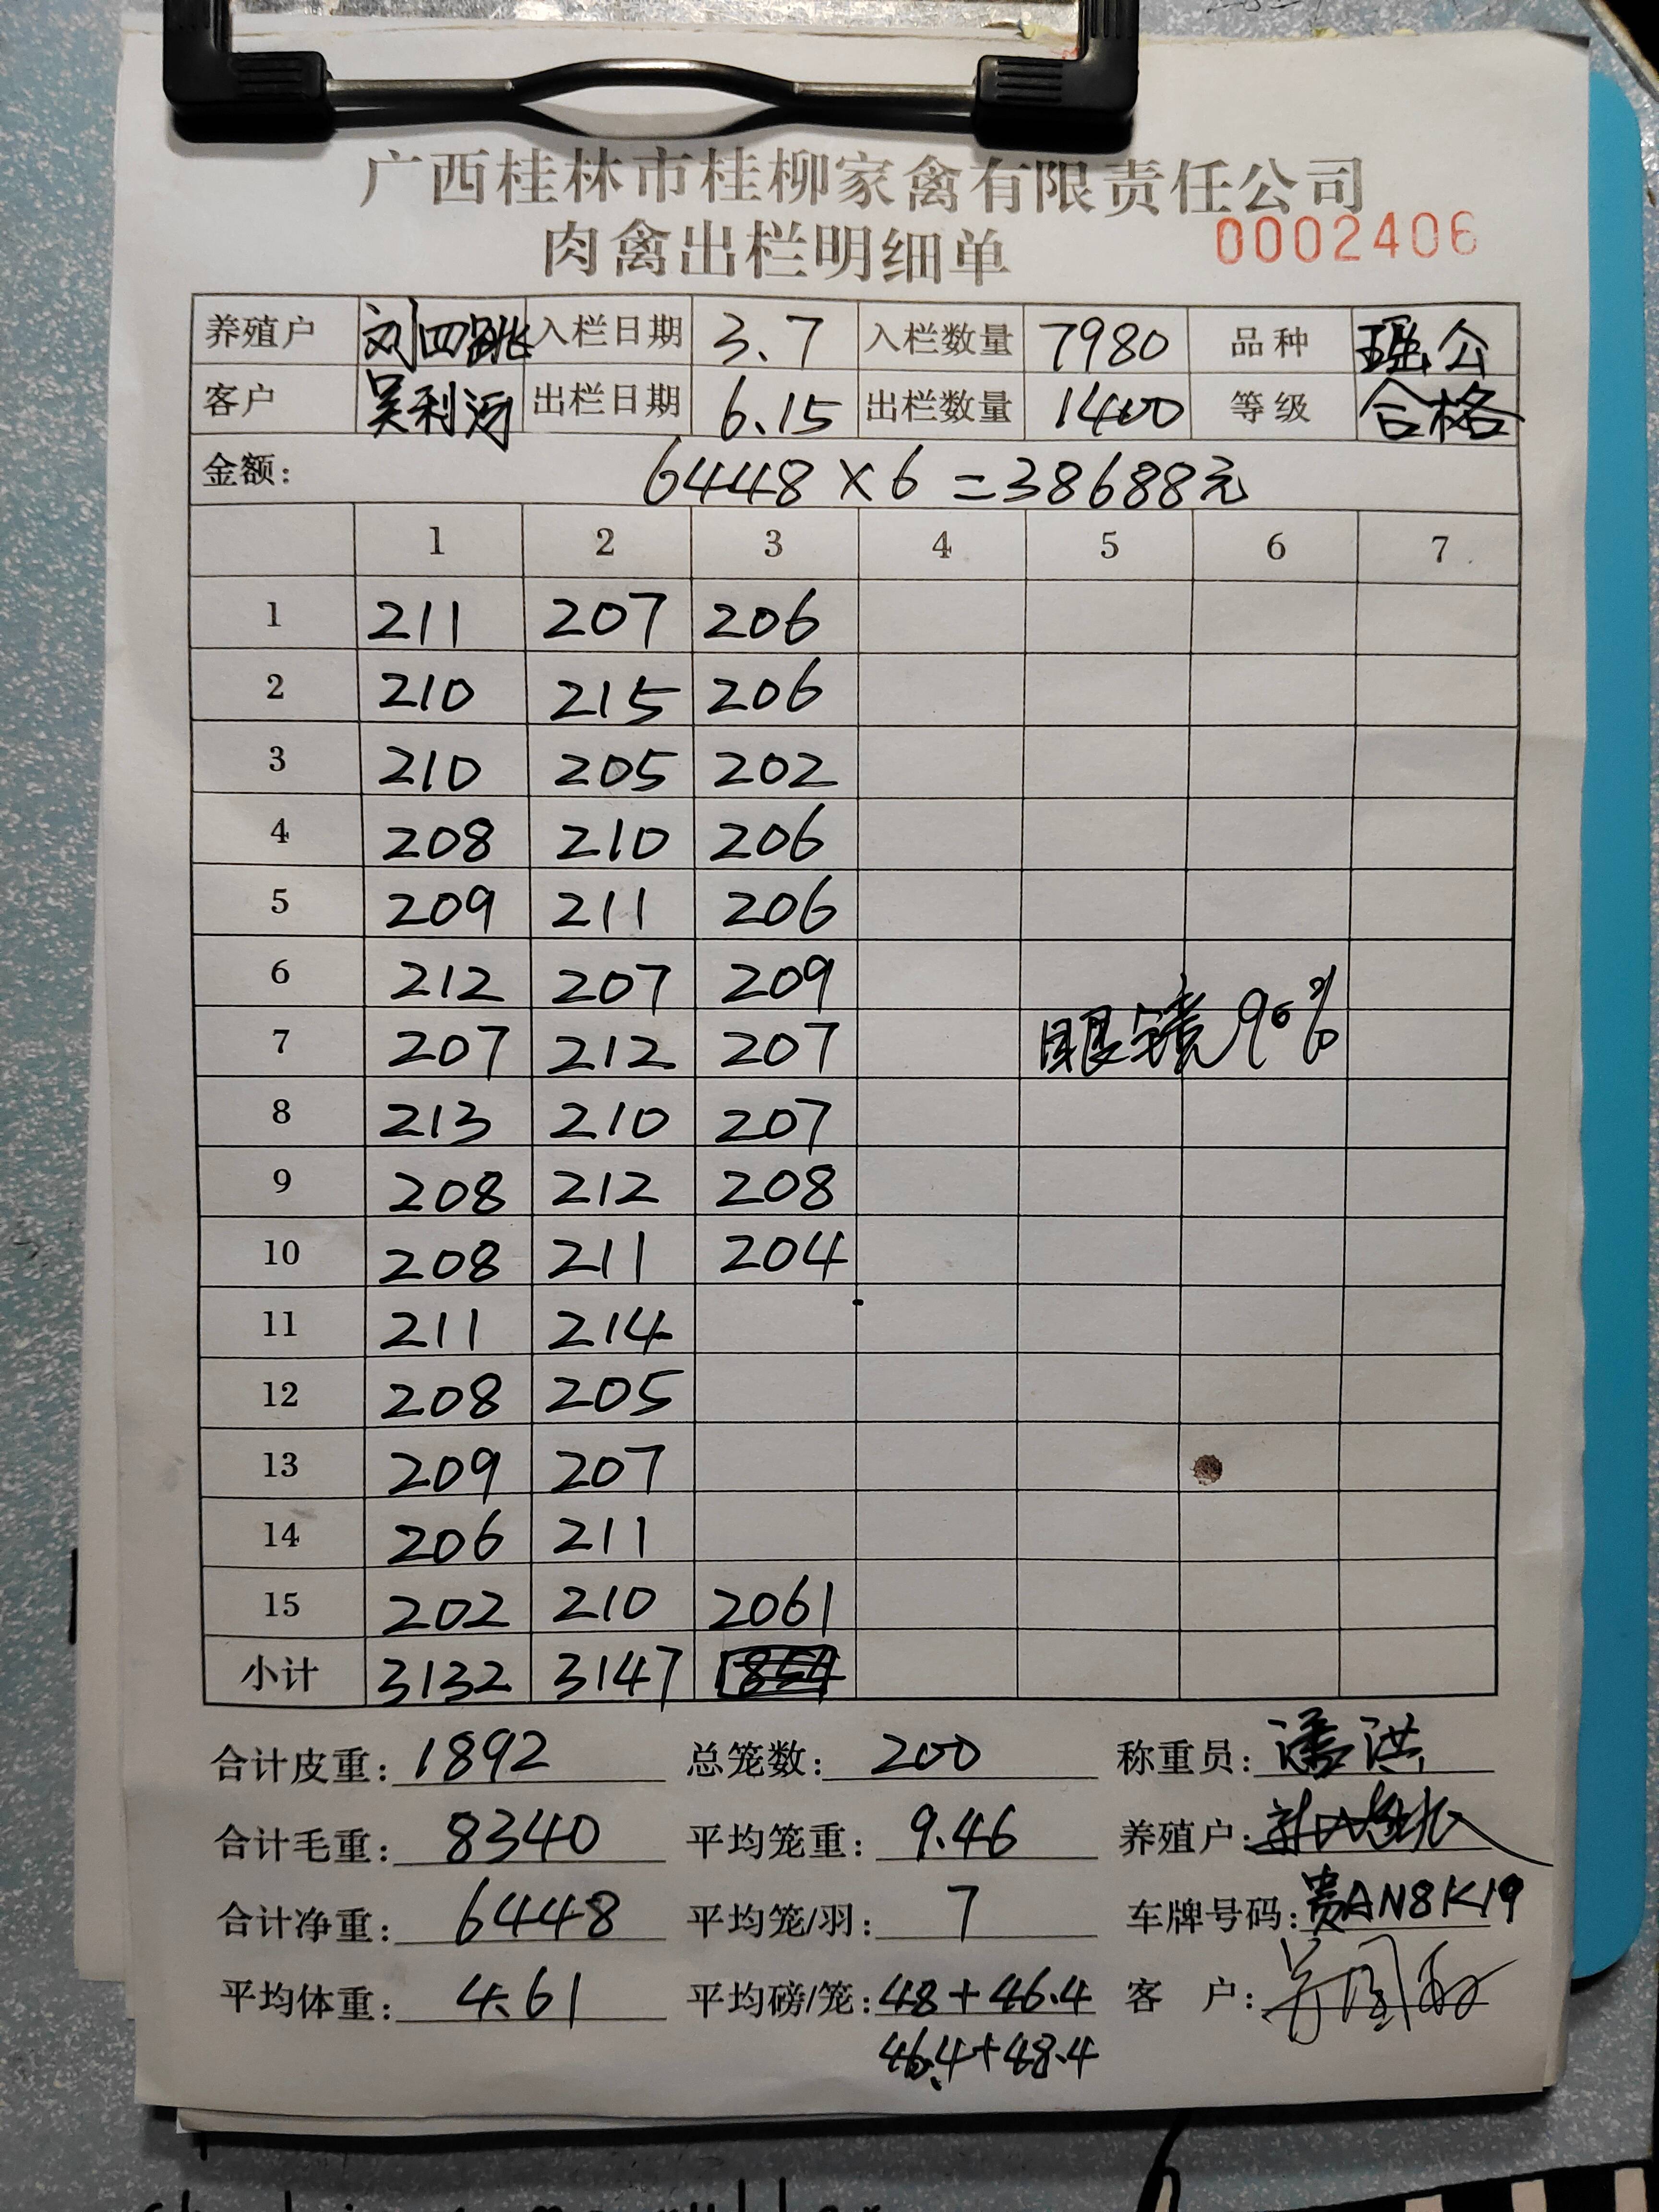 广西桂林市桂柳家禽有限责任公司
肉禽出栏明细单 0002406
养殖户 刘四跳 入栏日期 3.7 入栏数量 7980 品种 瑶公
客户 吴利河 出栏日期 6.15 出栏数量 1400 等级 合格
金额: 6448×6=38688元
1 2 3 4 5 6 7
1 211 207 206
2 210 215 206
3 210 205 202
4 208 210 206
5 209 211 206
6 212 207 209
7 207 212 207 眼镜90%
8 213 210 207
9 208 212 208
10 208 211 204
11 211 214
12 208 205
13 209 207
14 206 211
15 202 210 2061
小计 3132 3147
合计皮重: 1892 总笼数: 200 称重员: 潘洪
合计毛重: 8340 平均笼重: 9.46 养殖户:
合计净重: 6448 平均笼/羽: 7 车牌号码: 贵AN8K19
平均体重: 4.61 平均磅/笼: 48+46.4 客 户:
46.4+48.4